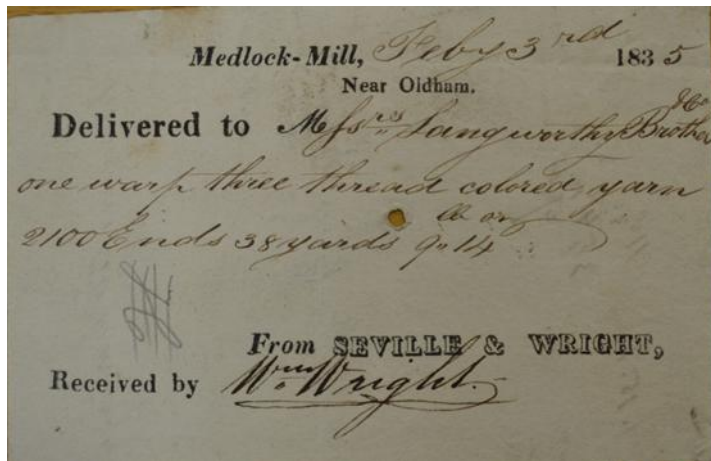 Medlock-Mill, Feby 3rd 1835
Near Oldham.
Delivered to Messrs Langworthy Brothers & Co
one warp three thread colored yarn
lb oz
2100 Ends 38 yards 9 " 14
From SEVILLE & WRIGHT,
Received by Wm Wright.